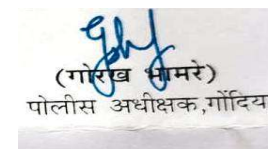 (गोरख भामरे)
पोलीस अधीक्षक,गोंदिया